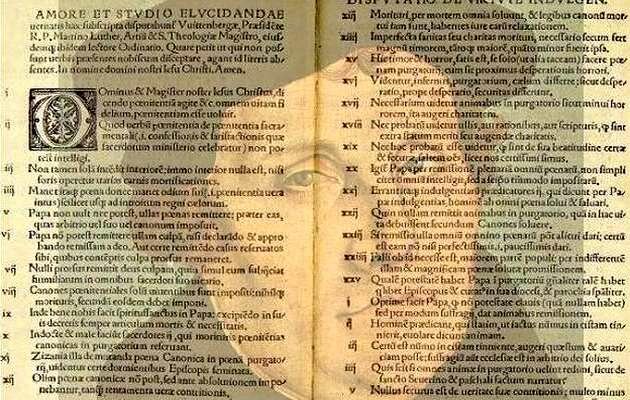 AMORE ET STVDIO ELVCIDANDAE
ueritatis hæc subscripta disputabunť Vuittenbergæ, Præsideñ
R. P. Martino Luther, Artiū & S. Theologiæ Magistro, eius-
dem ibidem lectore Ordinario. Quare petit ut qui non pos-
sunt verbis præsentes nobiscum disceptare, agant id literis ab-
sentes. In nomine domini nostri Iesu Christi, Amen.
i Ominus & Magister noster Iesus Christus, di-
cendo pœnitentiā agite &c. omnem uitam fi-
delium, pœnitentiam esse uoluit.
ij Quod uerbū de pœnitentia sacra-
mentali (.i. confessionis & satisfactionis quæ
sacerdotum ministerio celebratur) non po-
test intelligi.
iij Non tamen solā intēdit interiorē: immo interior nulla est, nisi
foris operetur uarias carnis mortificationes.
iiij Manet itaq; pœna donec manet odium sui (.i. pœnitentia uera
intus) scilicet usq; ad introitum regni cælorum.
v Papa non uult nec potest, ullas pœnas remittere: præter eas,
quas arbitrio uel suo uel canonum imposuit.
vj Papa nō potest remittere ullam culpā, nisi declarādo & appro-
bando remissam a deo. Aut certe remittēdo casus reseruatos
sibi, quibus contēptis culpa prorsus remaneret.
vij Nulli prorsus remittit deus culpam, quin simul eum subijciat
humiliatum in omnibus sacerdoti suo uicario.
viij Canones pœnitentiales solū uiuentibus sunt impositi: nihilq;
morituris, secundū eosdem debet imponi.
ix Inde bene nobis facit spiritussanctus in Papa: excipiēdo in su-
is decretis semper articulum mortis & necessitatis.
x Indocte & male faciūt sacerdotes ij, qui morituris pœnitētias
canonicas in purgatorium reseruant.
xj Zizania illa de mutanda pœna Canonica in pœnā purgato-
rij, uidentur certe dormientibus Episcopis seminata.
xij Olim pœnæ canonicæ nō post, sed ante absolutionem im-
ponebantur, tanquā tentamenta ueræ contritionis.
DISPVTATIO DE VIRTVTE INDVLGEN.
xiij Morituri, per mortem omnia soluunt, & legibus canonū mor-
tui iam sunt, habentes iure earū relaxationem.
xiiij Imperfecta sanitas seu charitas morituri, necessario secum fert
magnū timorem, tātoq; maiorē, quāto minor fuerit ipsa.
xv Hic timor & horror, satis est, se solo (ut alia taceam) facere pœ-
nam purgatorij, cum sit proximus desperationis horrori.
xvj Videntur, infernus, purgatoriū, cælum differre: sicut despera-
tio, prope desperatio, securitas differunt.
xvij Necessarium uidetur animabus in purgatorio sicut minui hor-
rorem, ita augeri charitatem.
xviij Nec probatū uidetur ullis, aut rationibus, aut scripturis, q̄ sint
extra statum meriti seu augendæ charitatis.
xix Nec hoc probatū esse uidetur, q̄ sint de sua beatitudine certæ
& securæ saltem oēs, licet nos certissimi simus.
xx Igiť Papa per remissionē plenariā omniū pœnarū, non simpli-
citer omniū intelligit, sed a seipso tātūmodo impositarū.
xxj Errant itaq; indulgētiarū prædicatores ij, qui dicunt per Pa-
pæ indulgentias, hominē ab omni pœna solui & saluari.
xxij Quin nullam remittit animabus in purgatorio, quā in hac ui-
ta debuissent secundum Canones soluere.
xxiij Si remissio ulla omniū omnino pœnarū pōt alicui dari; certū
est eam nō nisi perfectissimis .i. paucissimis dari.
xxiiij Falli ob id necesse est, maiorē partē populi: per indifferentem
illam & magnificam pœnæ solutæ promissionem.
xxv Qualē potestatē habet Papa ī purgatoriū gñaliter talē habet
quilibet Episcopus & curat9 in sua diocesi, & parochia spāliter.
j Optime facit Papa, q̄ nō potestate clauis (quā nullam habet)
sed per modum suffragij, dat animabus remissionem.
ij Hominē prædicant, qui statim, ut iactus nūmus in cistam tin-
nierit, euolare dicunt animam.
iij Certū est nūmo in cistam tinniente, augeri quæstum & auari-
ciam posse; suffragiū aūt ecclesiæ est in arbitrio dei solius.
iiij Quis scit si omnes animæ in purgatorio uelint redimi, sicut de
sancto Seuerino & paschali factum narratur.
v Nullus securus est de ueritate suæ contritionis; multominus